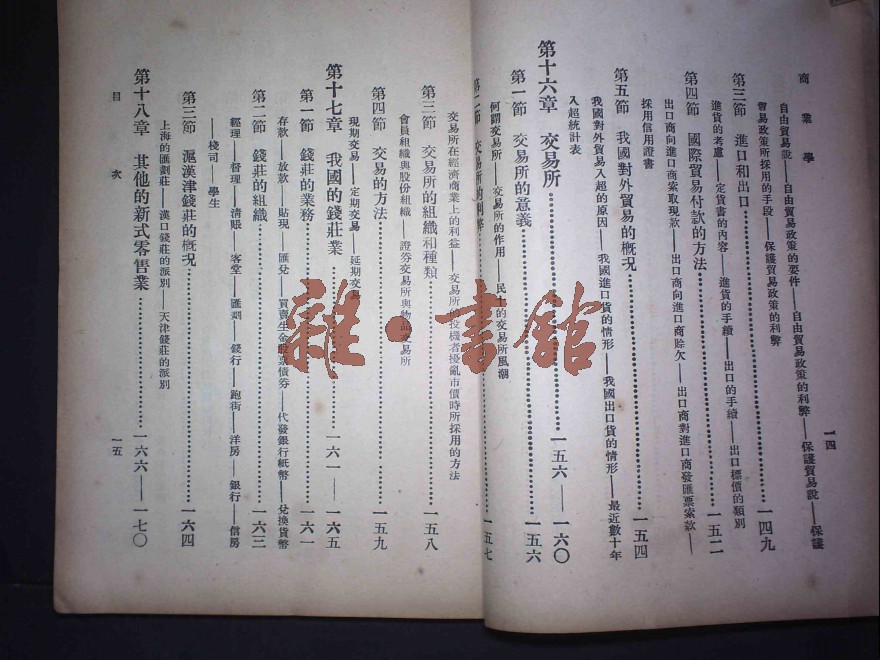 商業學
一四
自由貿易說——自由貿易政策的要件——自由貿易政策的利弊——保護貿易說——保護
貿易政策所採用的手段——保護貿易政策的利弊
第三節 進口和出口……一四九
進貨的考慮——定貨書的內容——進貨的手續——出口的手續——出口標價的類別
第四節 國際貿易付款的方法……一五二
出口商向進口商索取現款——出口商向進口商賒欠——出口商對進口商發匯票索款——
採用信用證書
第五節 我國對外貿易的概況……一五四
我國對外貿易入超的原因——我國進口貨的情形——我國出口貨的情形——最近數十年
入超統計表
第十六章 交易所……一五六——一六〇
第一節 交易所的意義……一五六
何謂交易所——交易所的作用——民十的交易所風潮
第二節 交易所的利弊……一五七
交易所在經濟商業上的利益——交易所的投機者擾亂市價時所採用的方法
第三節 交易所的組織和種類……一五八
會員組織與股份組織——證券交易所與物品交易所
第四節 交易的方法……一五九
現期交易——定期交易——延期交易
第十七章 我國的錢莊業……一六一——一六五
第一節 錢莊的業務……一六一
存款——放款——貼現——匯兌——買賣生金股票債券——代發銀行紙幣——兌換貨幣
第二節 錢莊的組織……一六三
經理——督理——清賬——客堂——匯劃——錢行——跑街——洋房——銀行——信房
——棧司——學生
第三節 滬漢津錢莊的概況……一六四
上海的匯劃莊——漢口錢莊的派別——天津錢莊的派別
第十八章 其他的新式零售業……一六六——一七〇
目次
一五
雜·書館